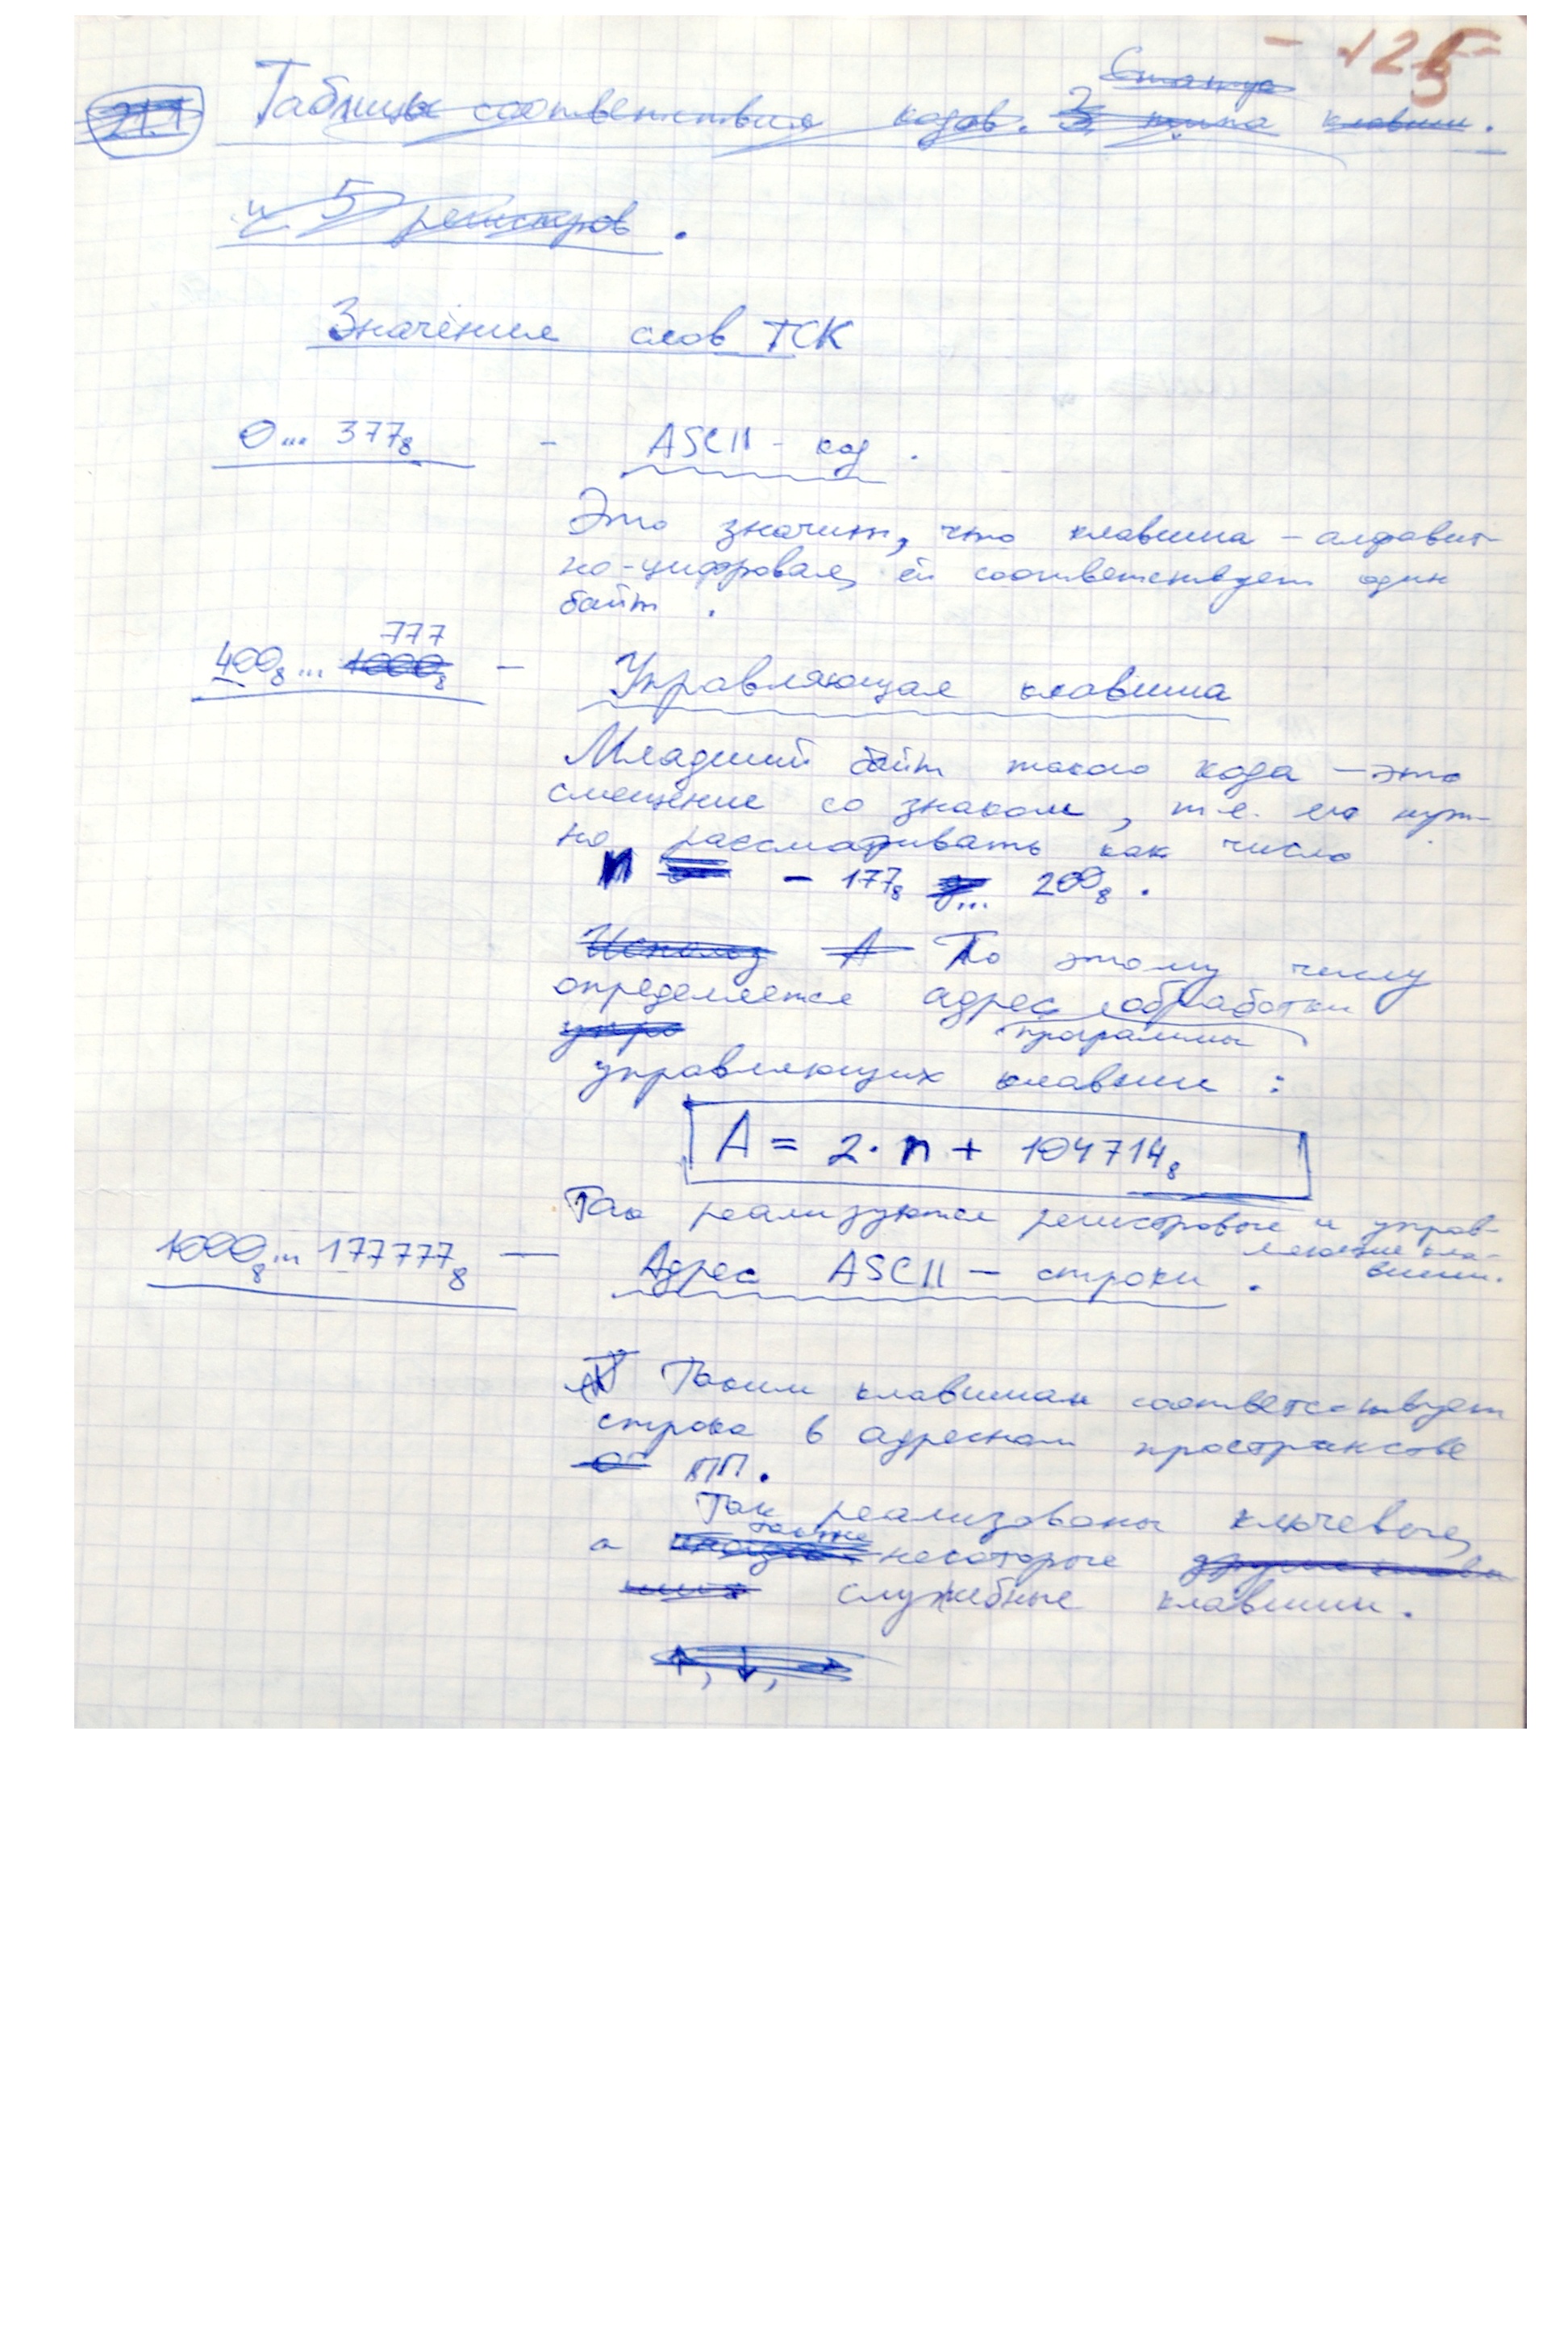 - 125
Статус
21.1 Таблицы соответствия кодов. 3 типа клавиш.
и 5 регистров.
Значения слов ТСК
0... 377₈ - ASCII - код.
Это значит, что клавиша - алфавит-
но-цифровая, ей соответствует один
байт.
777
400₈... 1000₈ - Управляющая клавиша
Младший байт такого кода - это
смещение со знаком, т.е. его нуж-
но рассматривать как число
n - 177₈ ... 200₈.
Использ А По этому числу
определяется адрес обработки
упра программы
управляющих клавиш :
A = 2·n + 104714₈
Так реализуются регистровые и управ-
ляющие кла-
виши.
1000₈... 177777₈ - Адрес ASCII - строки.
Таким клавишам соответствует
строка в адресном пространстве
ПП.
Так реализованы ключевые,
также
а некоторые другие клави
ши служебные клавиши.
↑, ↓, →